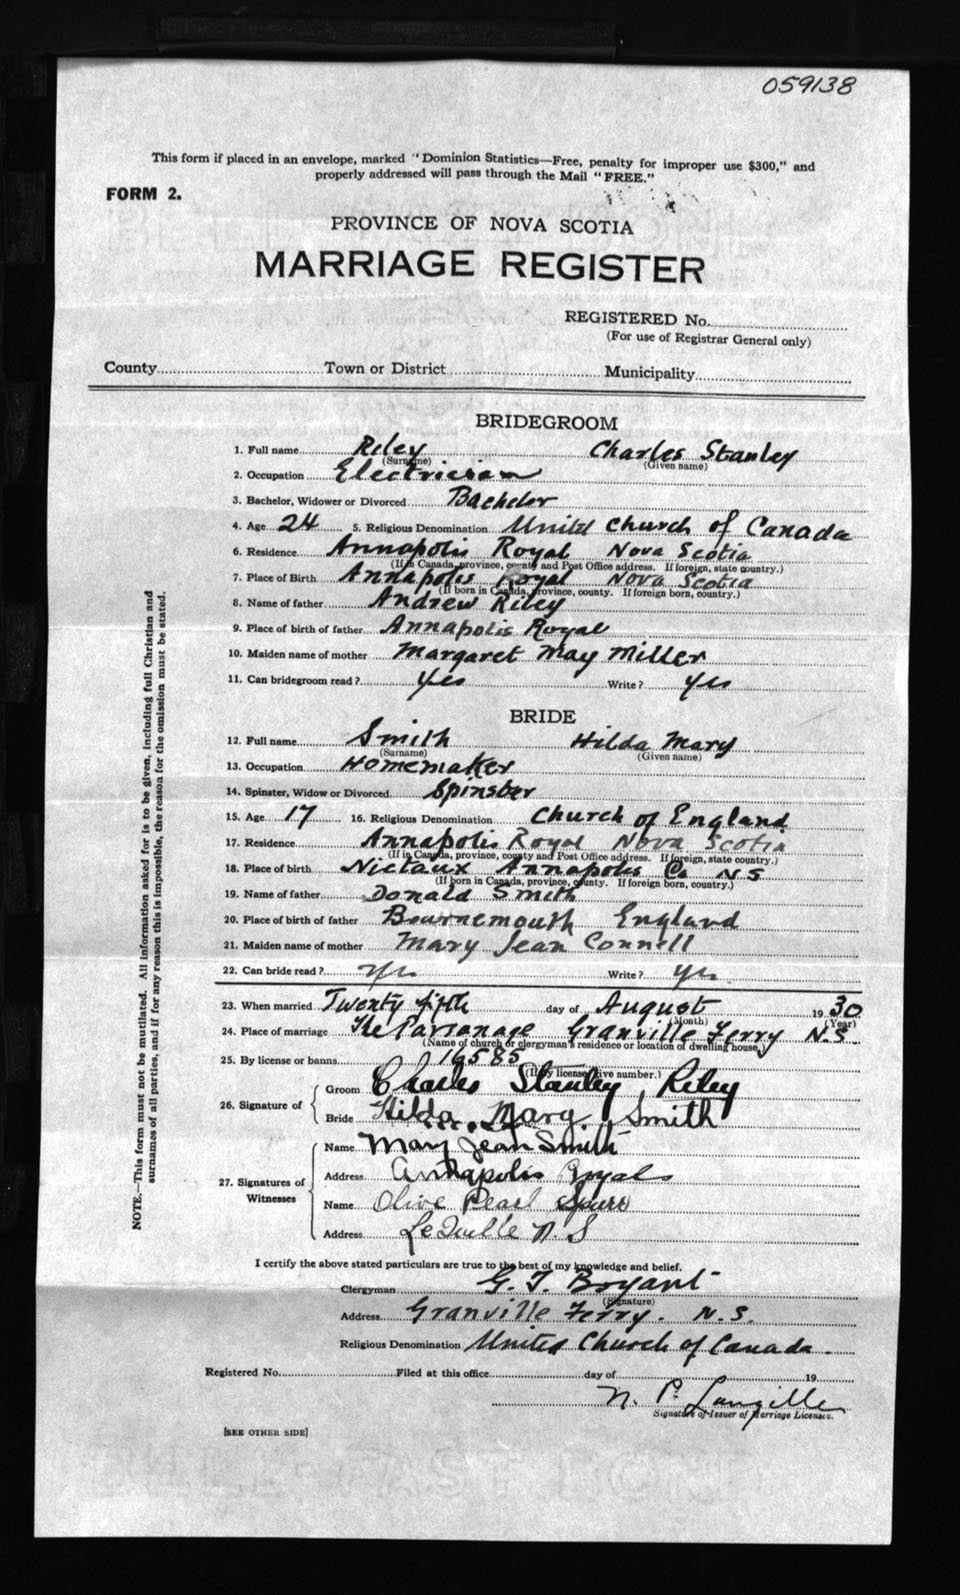 059138
This form if placed in an envelope, marked "Dominion Statistics—Free, penalty for improper use $300," and
properly addressed will pass through the Mail "FREE."
FORM 2.
PROVINCE OF NOVA SCOTIA
MARRIAGE REGISTER
REGISTERED No.
(For use of Registrar General only)
County Town or District Municipality
BRIDEGROOM
1. Full name Riley Charles Stanley
(Surname) (Given name)
2. Occupation Electrician
3. Bachelor, Widower or Divorced Bachelor
4. Age 24 5. Religious Denomination United Church of Canada
6. Residence Annapolis Royal Nova Scotia
(If in Canada, province, county and Post Office address. If foreign, state country.)
7. Place of Birth Annapolis Royal Nova Scotia
(If born in Canada, province, county. If foreign born, country.)
8. Name of father Andrew Riley
9. Place of birth of father Annapolis Royal
10. Maiden name of mother Margaret May Miller
11. Can bridegroom read? Yes Write? Yes
BRIDE
12. Full name Smith Hilda Mary
(Surname) (Given name)
13. Occupation Homemaker
14. Spinster, Widow or Divorced Spinster
15. Age 17 16. Religious Denomination Church of England
17. Residence Annapolis Royal Nova Scotia
(If in Canada, province, county and Post Office address. If foreign, state country.)
18. Place of birth Nictaux Annapolis Co N S
(If born in Canada, province, county. If foreign born, country.)
19. Name of father Donald Smith
20. Place of birth of father Bournemouth England
21. Maiden name of mother Mary Jean Connell
22. Can bride read? Yes Write? Yes
23. When married Twenty fifth day of August 1930
(Month) (Year)
24. Place of marriage The Parsonage Granville Ferry N.S.
(Name of church or clergyman's residence or location of dwelling house)
25. By license or banns 16585
(If by license give number.)
26. Signature of Groom Charles Stanley Riley
Bride Hilda Mary Smith
27. Signatures of Witnesses Name Mary Jean Smith
Address Annapolis Royal
Name Olive Pearl Spurr
Address LeQuille N. S
I certify the above stated particulars are true to the best of my knowledge and belief.
Clergyman G. T. Bryant
(Signature)
Address Granville Ferry. N.S.
Religious Denomination United Church of Canada.
Registered No. Filed at this office day of 19
N. P. Langille
Signature of Issuer of Marriage Licenses.
[SEE OTHER SIDE]
NOTE.—This form must not be mutilated. All information asked for is to be given, including full Christian and
surnames of all parties, and if for any reason this is impossible, the reason for the omission must be stated.